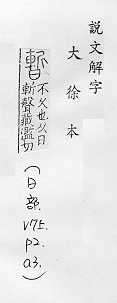 說文解字
大徐本
暫 不久也从日
斬聲藏濫切
(日部.
V75.
P2.
a3.)